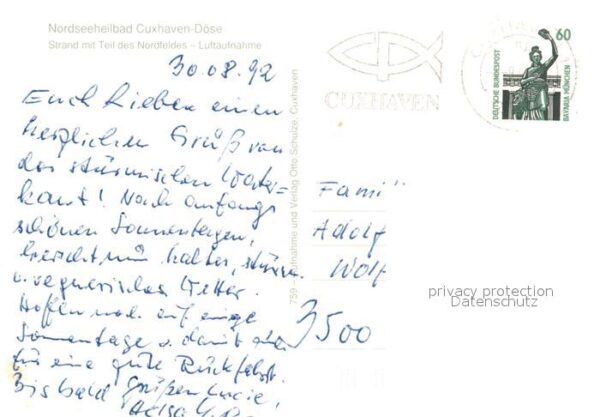 Nordseeheilbad Cuxhaven-Döse
Strand mit Teil des Nordfeldes – Luftaufnahme
30.08.92
Euch Lieben einen
herzlichen Gruß von
der stürmischen Water=
kant! Nach anfangs
schönen Sonnentagen,
herrscht nun kaltes, stürm.
u. regnerisches Wetter.
Hoffen noch auf einige
Sonnentage u. damit auch
für eine gute Rückfahrt.
Bis bald grüßen
759 Luftaufnahme und Verlag Otto Schulze, Cuxhaven
CUXHAVEN
60
DEUTSCHE BUNDESPOST
BAVARIA MÜNCHEN
Fami
Adolf
Wolf
3500
privacy protection
Datenschutz